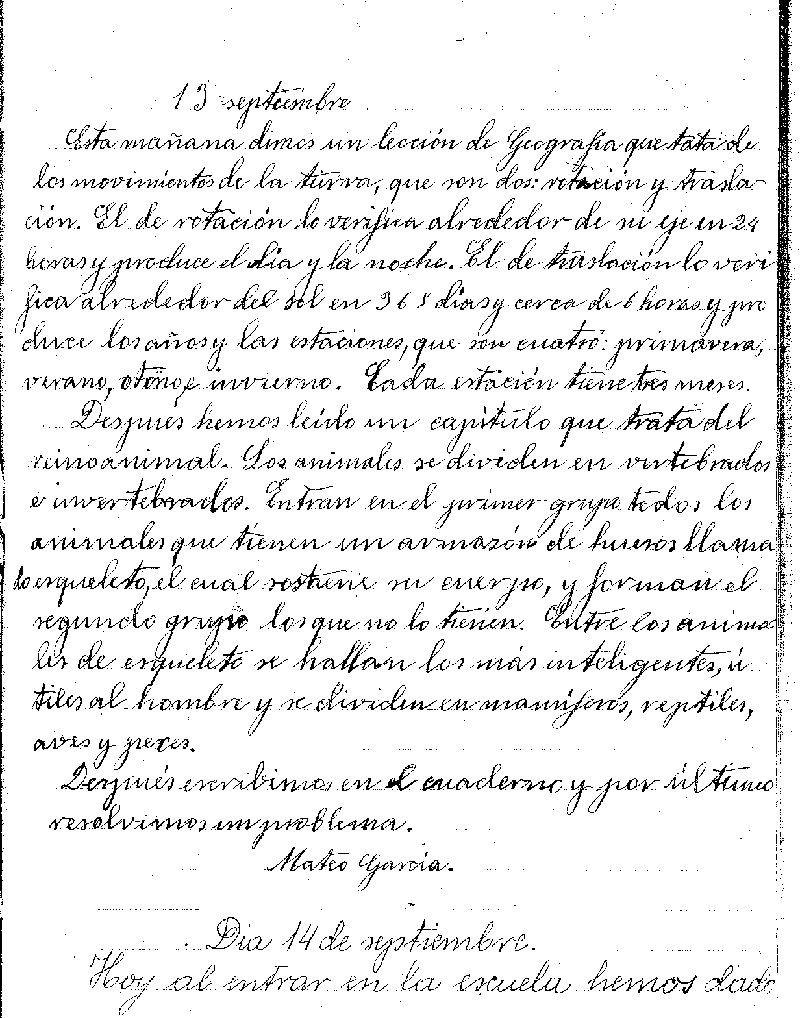 13 septiembre
Esta mañana dimos un lección de Geografia que tata de
los movimientos de la tierra, que son dos: rotación y trasla-
ción. El de rotación lo verifica alrededor de su eje en 24
horas y produce el día y la noche. El de traslación lo veri
fica alrededor del sol en 365 días y cerca de 6 horas y pro
duce los años y las estaciones, que son cuatro: primavera,
verano, otoño, e invierno. Cada estación tiene tres meses.
Después hemos leído un capítulo que trata del
reino animal. Los animales se dividen en vertebrados
e invertebrados. Entran en el primer grupo todos los
animales que tienen un armazón de huesos llama
do esqueleto, el cual sostiene su cuerpo, y forman el
segundo grupo los que no lo tienen. Entre los anima
les de esqueleto se hallan los más inteligentes, ú
tiles al hombre y se dividen en mamíferos, reptiles,
aves y peces.
Después escribimos en el cuaderno y por último
resolvimos un problema.
Mateo García.
Dia 14 de septiembre.
Hoy al entrar en la escuela hemos dado